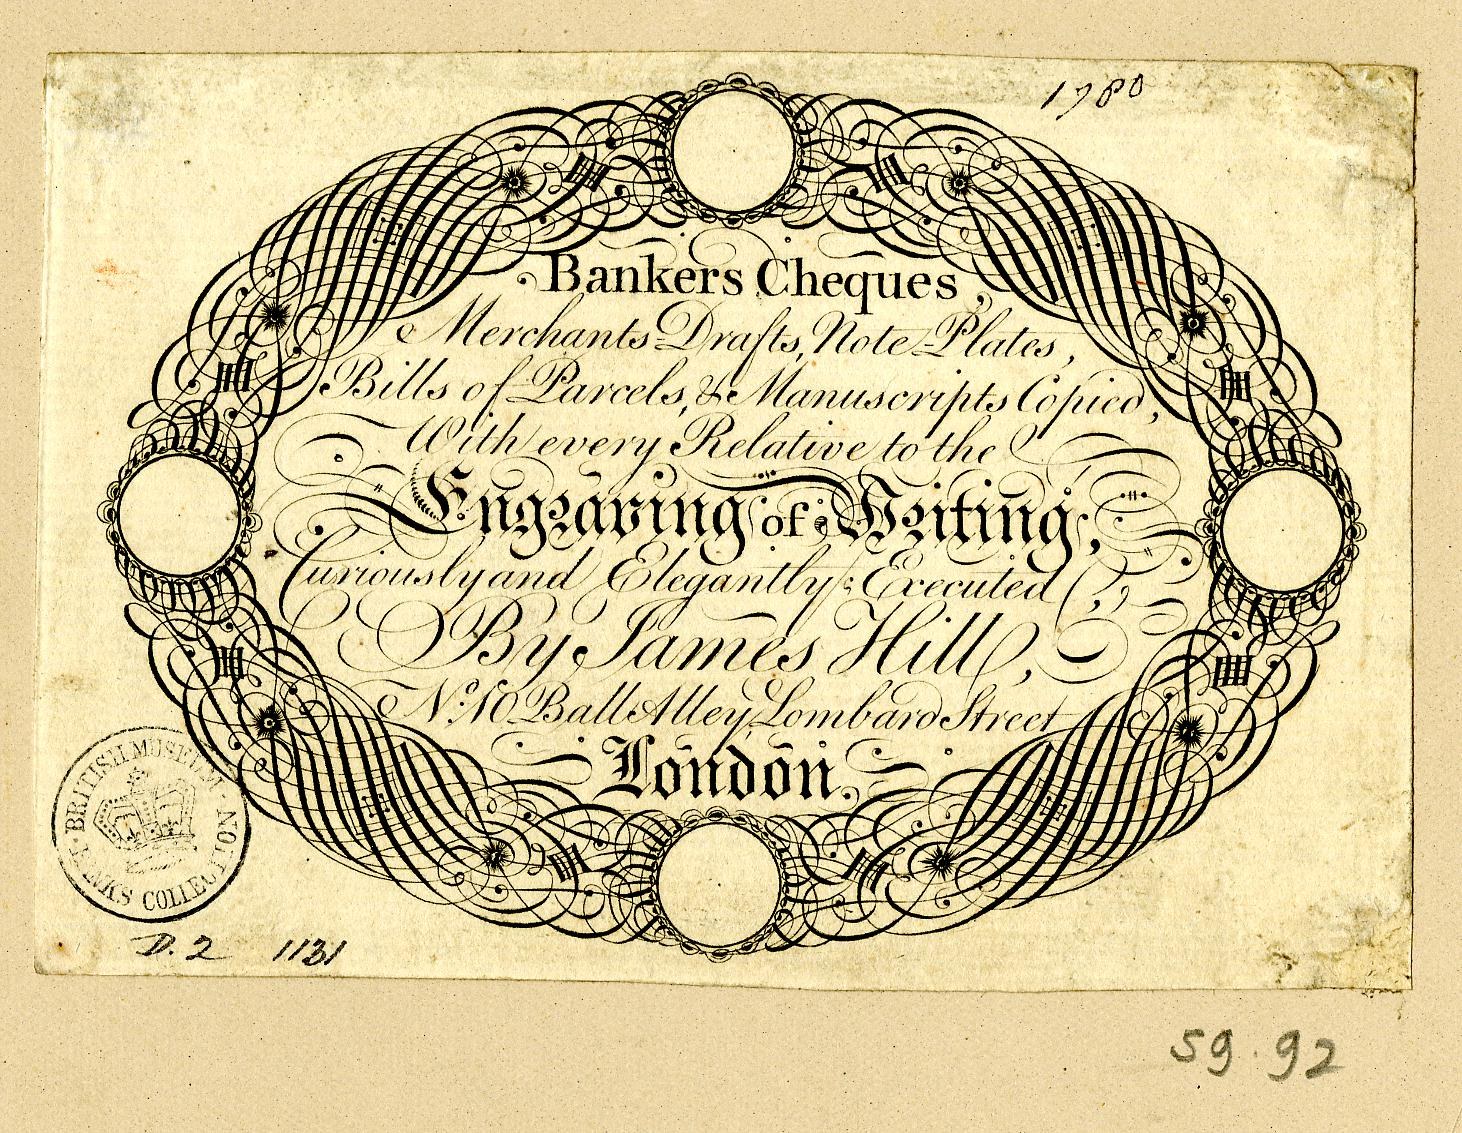 1780
Bankers Cheques,
Merchants Drafts, Note Plates,
Bills of Parcels, & Manuscripts Copied,
With every Relative to the
Engraving of Writing,
Curiously and Elegantly Executed
By James Hill,
No. 10 Ball Alley, Lombard Street
London.
BRITISH MUSEUM
COLLECTION
D.2 1131
59.92